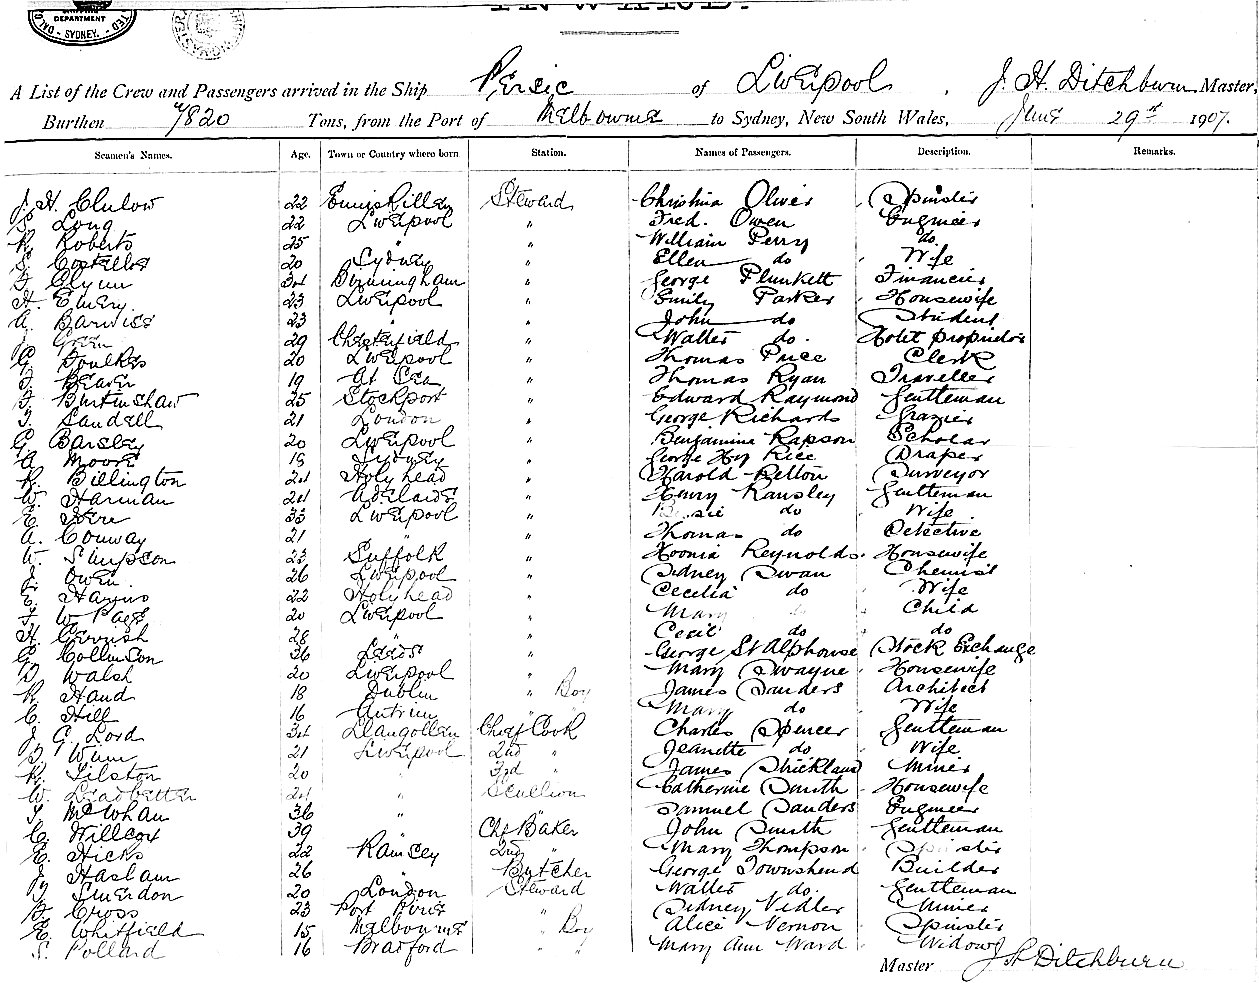 DEPARTMENT
SYDNEY.
INWARD.
A List of the Crew and Passengers arrived in the Ship Persic of Liverpool, J. H. Ditchburn Master,
Burthen 7820 Tons, from the Port of Melbourne to Sydney, New South Wales, June 29th 1907.
Seamen's Names. Age. Town or Country where born Station. Names of Passengers. Description. Remarks.
J. H. Clulow 22 Enniskillen Steward Christina Oliver Spinster
Long 22 Liverpool " Fred. Owen Engineer
R. Roberts 25 " " William Perry do
S. Costello 20 Sydney " Ellen do Wife
Glynn 34 Birmingham " George Plunkett Financier
H. Emery 23 Liverpool " Emily Parker Housewife
A. Barwise 23 " " John do Student
Green 29 Chesterfield " Walter do. Hotel Proprietor
G. Foulkes 20 Liverpool " Thomas Price Clerk
Beaver 19 At Sea " Thomas Ryan Traveller
Burtenshaw 25 Stockport " Edward Raymond Gentleman
Sandell 21 London " George Richards Grazier
G. Barsley 20 Liverpool " Benjamine Rapson Scholar
A. Moore 18 Sydney " George Hy Rice Draper
R. Billington 21 Holyhead " Harold Relton Surveyor
W. Harman 24 Adelaide " Henry Ransley Gentleman
E. 33 Liverpool " Bessie do Wife
A. Conway 21 " " Thomas do Detective
W. Simpson 22 Suffolk " Reynolds Housewife
J. Owen 26 Liverpool " Sidney Swan Chemist
E. Haynes 22 Holyhead " Cecelia do Wife
W. Page 20 Liverpool " Mary do Child
H. Gerrish 28 " " Cecil do do
G. Collinson 36 Leeds " George St Alphonse Stock Exchange
Walsh 20 Liverpool " Mary Swayne Housewife
R. Hand 18 Dublin " Boy James Sanders Architect
C. Hill 16 Antrim " " Mary do Wife
J. C. Lord 34 Llangollen Chef Cook Charles Spencer Gentleman
21 Liverpool 2nd " Jeanette do Wife
R. Tilston 20 " 3rd " James Strickland Miner
W. Leadbetter 21 " Scullion Catherine Smith Housewife
McWhan 36 " " Samuel Sanders Engineer
C. Willcox 39 " Chf Baker John Smith Gentleman
E. Hicks 22 Ramsey 2nd " Mary Thompson Spinster
J. Haslam 26 " Butcher George Townshend Builder
Smerdon 20 London Steward Walter do. Gentleman
Cross 23 Port Pirie " Sidney Vidler Miner
E. Whitfield 15 Melbourne " Boy Alice Vernon Spinster
S. Pollard 16 Bradford " " Mary Ann Ward Widow
Master J. H. Ditchburn